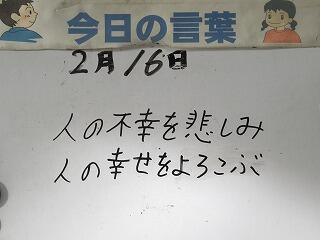 今日の言葉
2月16日
人の不幸を悲しみ
人の幸せをよろこぶ